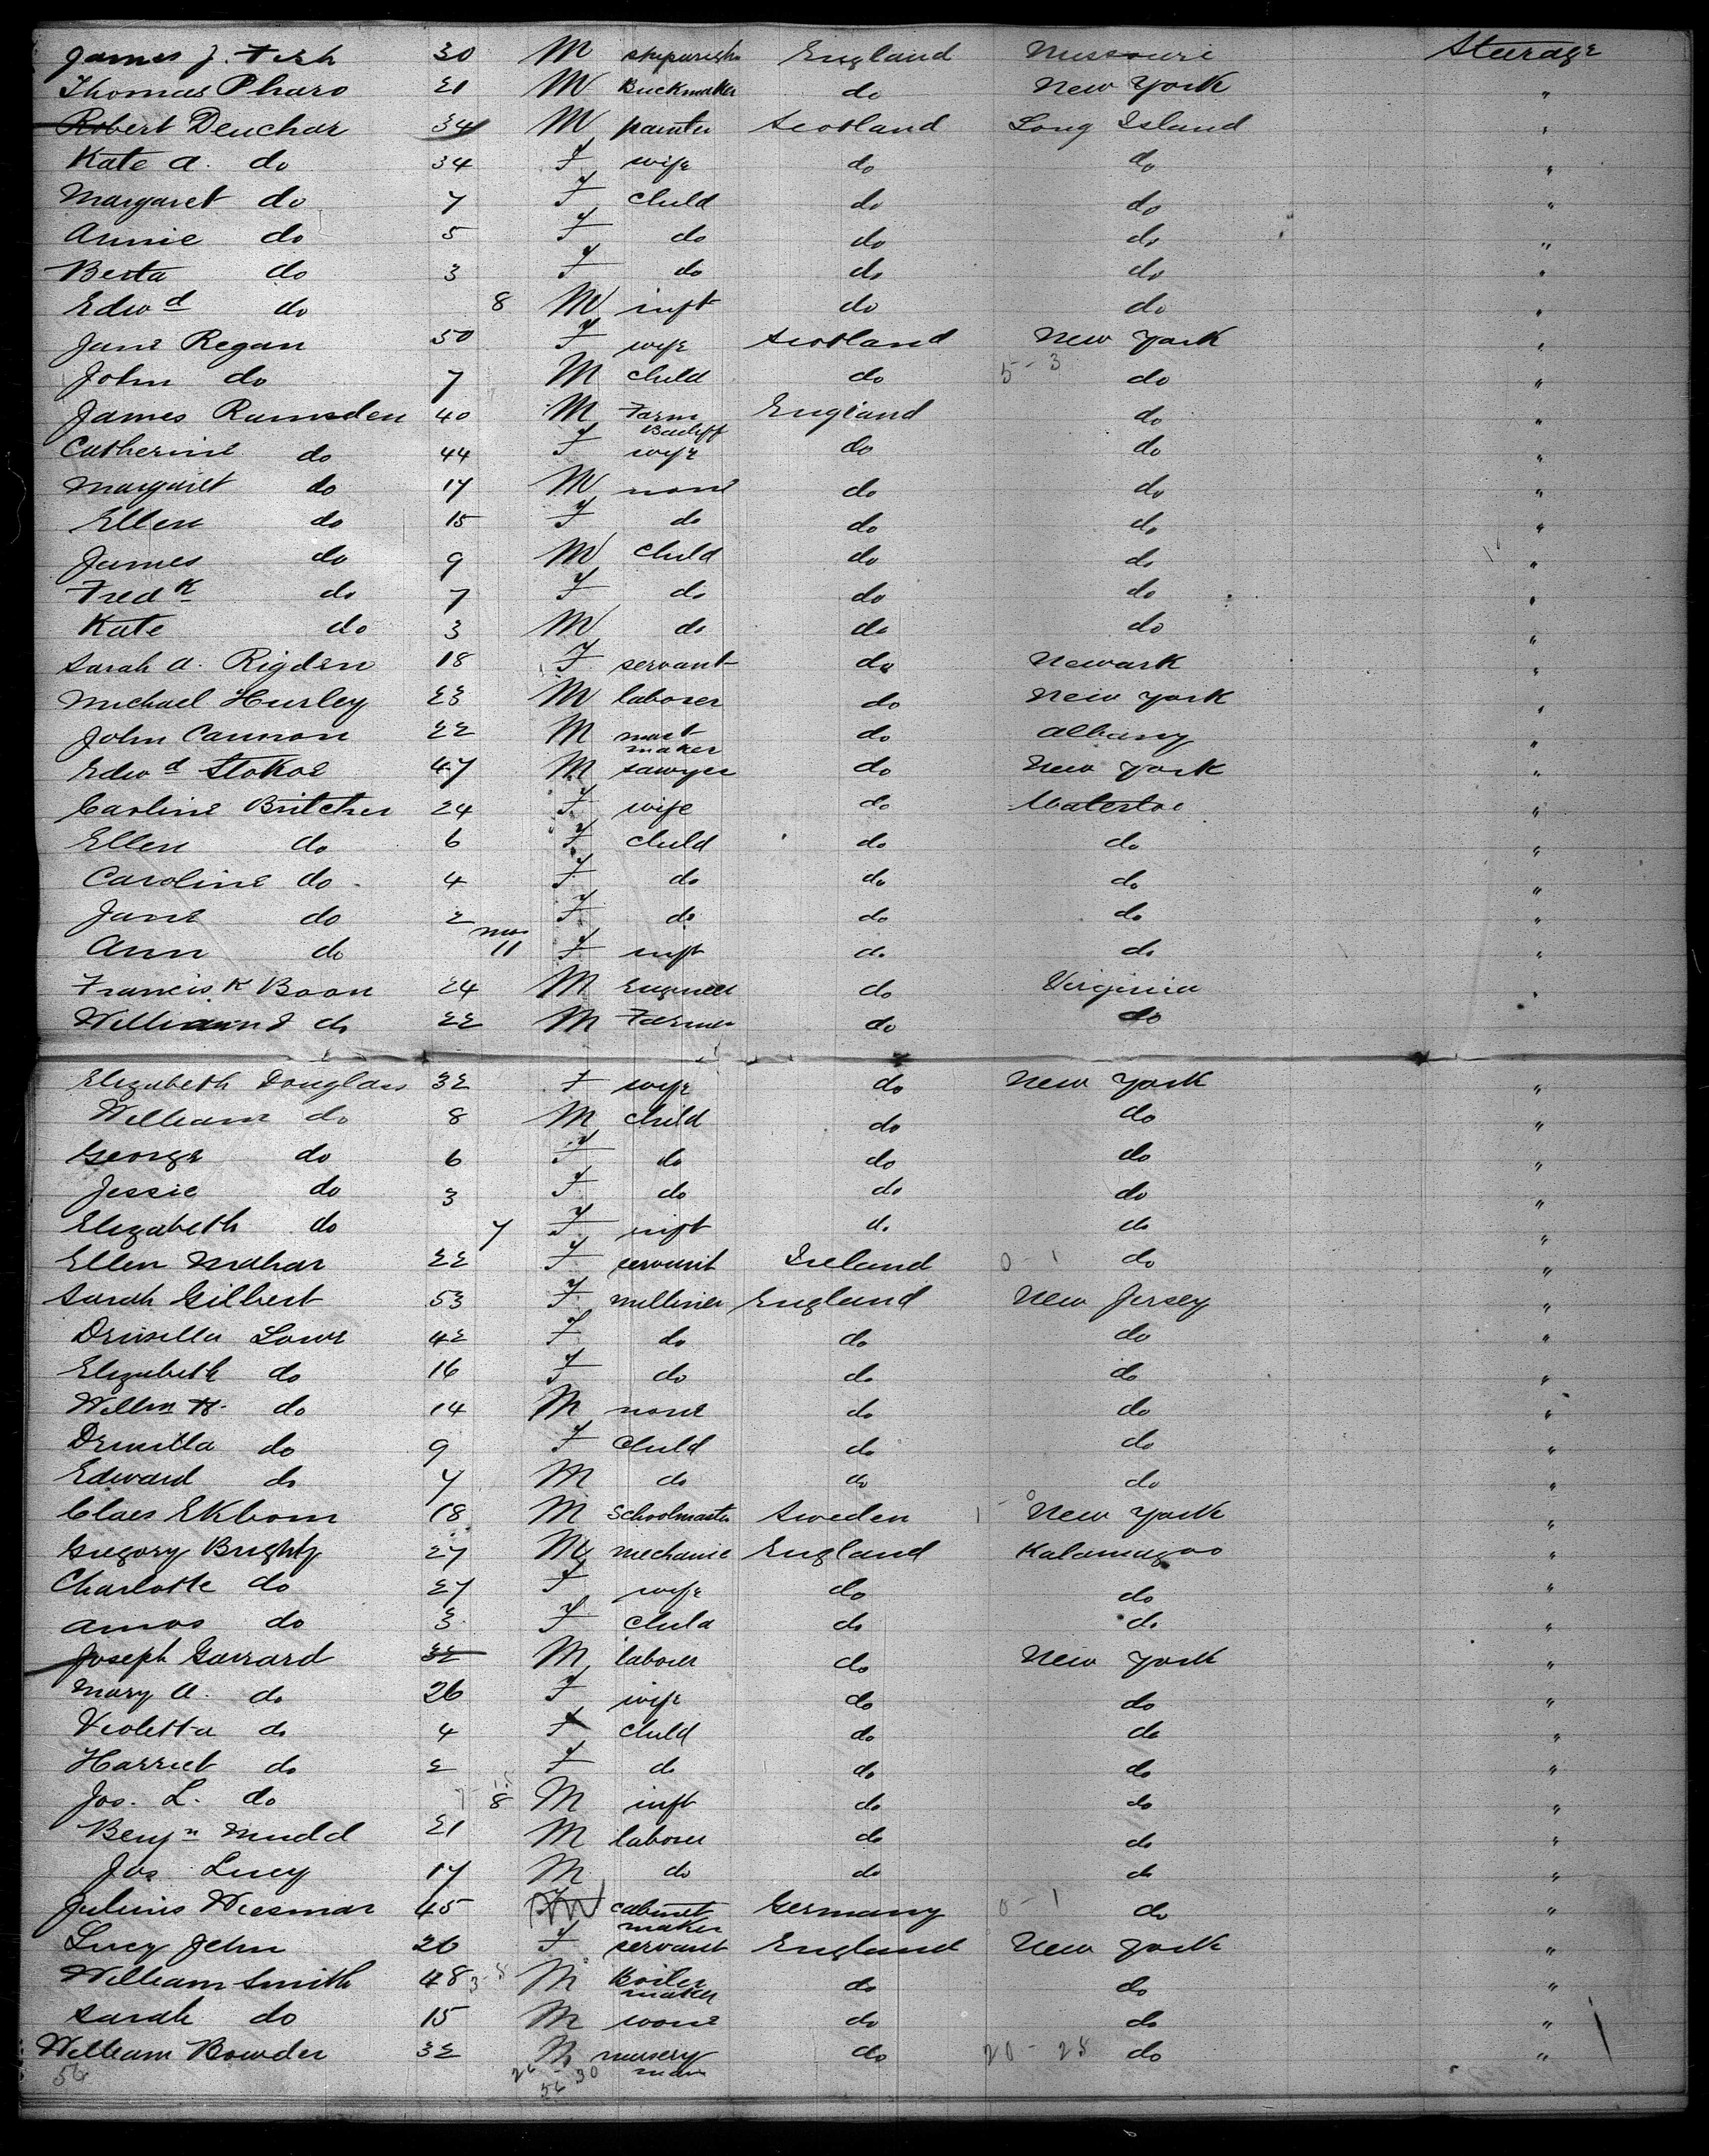 James J. Fish 30 M England Missouri Steerage
Thomas Pharo 21 M Buckmaker do New York "
Robert Deuchar 34 M painter Scotland Long Island "
Kate A. do 34 F wife do do "
Margaret do 7 F child do do "
Annie do 5 F do do do "
Berta do 3 F do do do "
Edwd do 8 M inft do do "
Jane Regan 50 F wife Scotland New York "
John do 7 M child do 5 - 3 do "
James Ramsden 40 M Farm Bailiff England do "
Catherine do 44 F wife do do "
Margaret do 17 M none do do "
Ellen do 15 F do do do "
James do 9 M child do do "
Fredk do 7 F do do do "
Kate do 3 M do do do "
Sarah A. Rigden 18 F servant do Newark "
Michael Hurley 23 M laborer do New York "
John Cannon 22 M mast maker do Albany "
Edwd Stokoe 47 M sawyer do New York "
Caroline Britcher 24 F wife do Waterloo "
Ellen do 6 F child do do "
Caroline do 4 F do do do "
Jane do 2 F do do do "
Ann do mos 11 F inft do do "
Francis K Boon 24 M Engineer do Virginia "
William do 22 M Farmer do do
Elizabeth Douglass 32 F wife do New York "
William do 8 M child do do "
George do 6 F do do do "
Jessie do 3 F do do do "
Elizabeth do 7 F inft do do "
Ellen Mahar 22 F servant Ireland 0 - 1 do "
Sarah Gilbert 53 F milliner England New Jersey "
Drusilla Lowe 42 F do do do "
Elizabeth do 16 F do do do "
Willm H. do 14 M none do do "
Drusilla do 9 F child do do "
Edward do 7 M do do do "
Claes Ekbom 18 M Schoolmaster Sweden 1 - 0 New York "
Gregory Brighty 27 M mechanic England Kalamazoo "
Charlotte do 27 F wife do do "
Amos do 3 F child do do "
Joseph Garrard 32 M laborer do New York "
Mary A. do 26 F wife do do "
Violetta do 4 F child do do "
Harriet do 2 F do do do "
Jos. L. do 8 M inft do do "
Benjn Mudd 21 M laborer do do "
Jos Lucy 17 M do do do "
Julius Wiesmar 45 M cabinet maker Germany 0 - 1 do "
Lucy Jehn 26 F servant England New York "
William Smith 48 M Boiler maker do do "
Sarah do 15 M none do do "
William Bowder 32 M nursery man do 20 - 25 do "
56 26 - 30
56